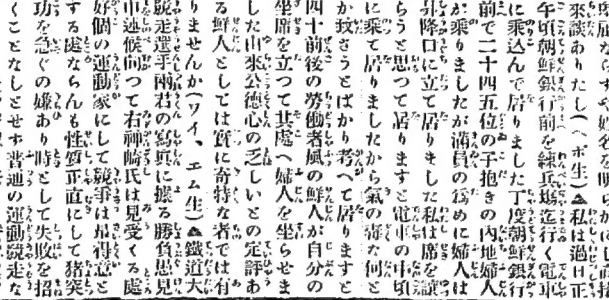 来談ありたし(ヘボ生)▲私は過日正
午頃朝鮮銀行前を練兵場迄行く電車
に乗込んで居りました丁度朝鮮銀行
前で二十四五位の子抱きの内地婦人
が乗りましたが満員の為めに婦人は
昇降口に立て居りました私は席を譲
らうと思つて居りますと電車の中頃
に乗て居りましたから気の毒な何と
か致さうとばかり考へて居りますと
四十前後の労働者風の鮮人が自分の
坐席を立つて其処へ婦人を坐らせま
した由来公徳心の乏しいとの定評あ
る鮮人としては実に寄特な者では有
りませんか(ワイ、エム生)▲鉄道大
競走選手両君の写真に拠る勝負思見
申述候向つて右神崎氏は見受くる処
好個の運動家にして競争は最得意と
する処ならんも性質正直にして猪突
功を急ぐの嫌あり時として失敗を招
くことなしとせず普通の運動競走な